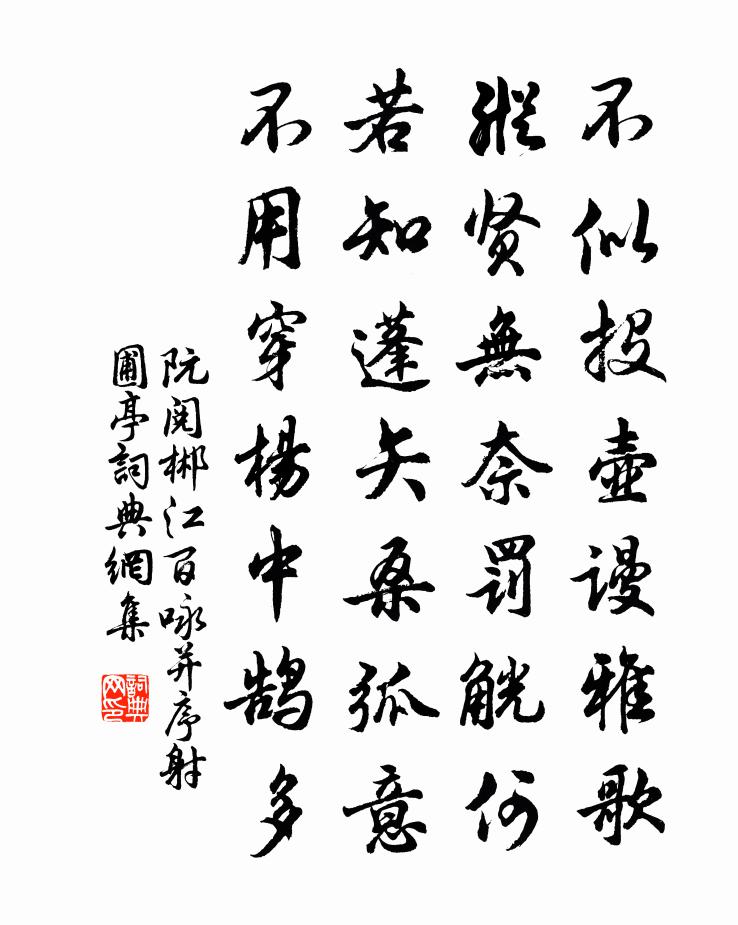 不似投壺謾雅歌
縱賢無奈罰觥何
若知蓬矢桑弧意
不用穿楊中鵠多
阮閱郴江百咏并序射
圃亭詞典網集
詞典
网印